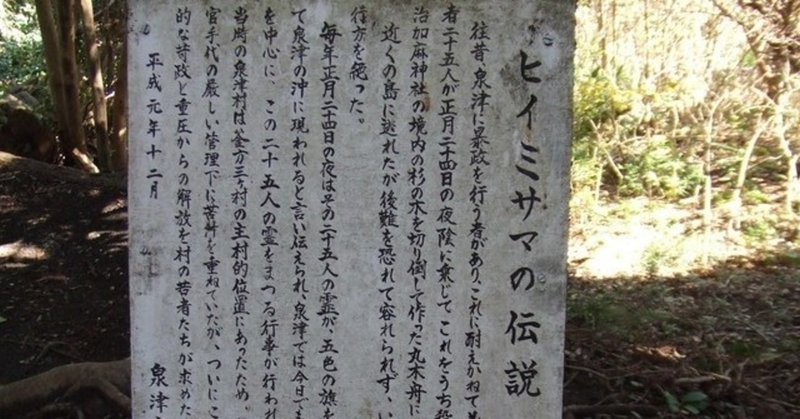 ヒイミサマの伝説
往昔、泉津に暴政を行う者があり、これに耐えかねて
者二十五人が正月二十四日の夜陰に乗じて、これをうち
治加麻神社の境内の杉の木を切り倒して作った丸木舟に
近くの島に逃れたが後難を恐れて容れられず、
行方を絶った。
毎年正月二十四日の夜はその二十五人の霊が、五色の旗を
て泉津の沖に現われると言い伝えられ、泉津では今日でも
を中心に、この二十五人の霊をまつる行事が行われ
当時の泉津村は釜方三ヶ村の主村的位置にあったため、
官手代の厳しい管理下に苦斗を重ねていたが、ついにこ
的な苛政と重圧からの解放を村の若者たちが求めた
平成元年十二月
泉津